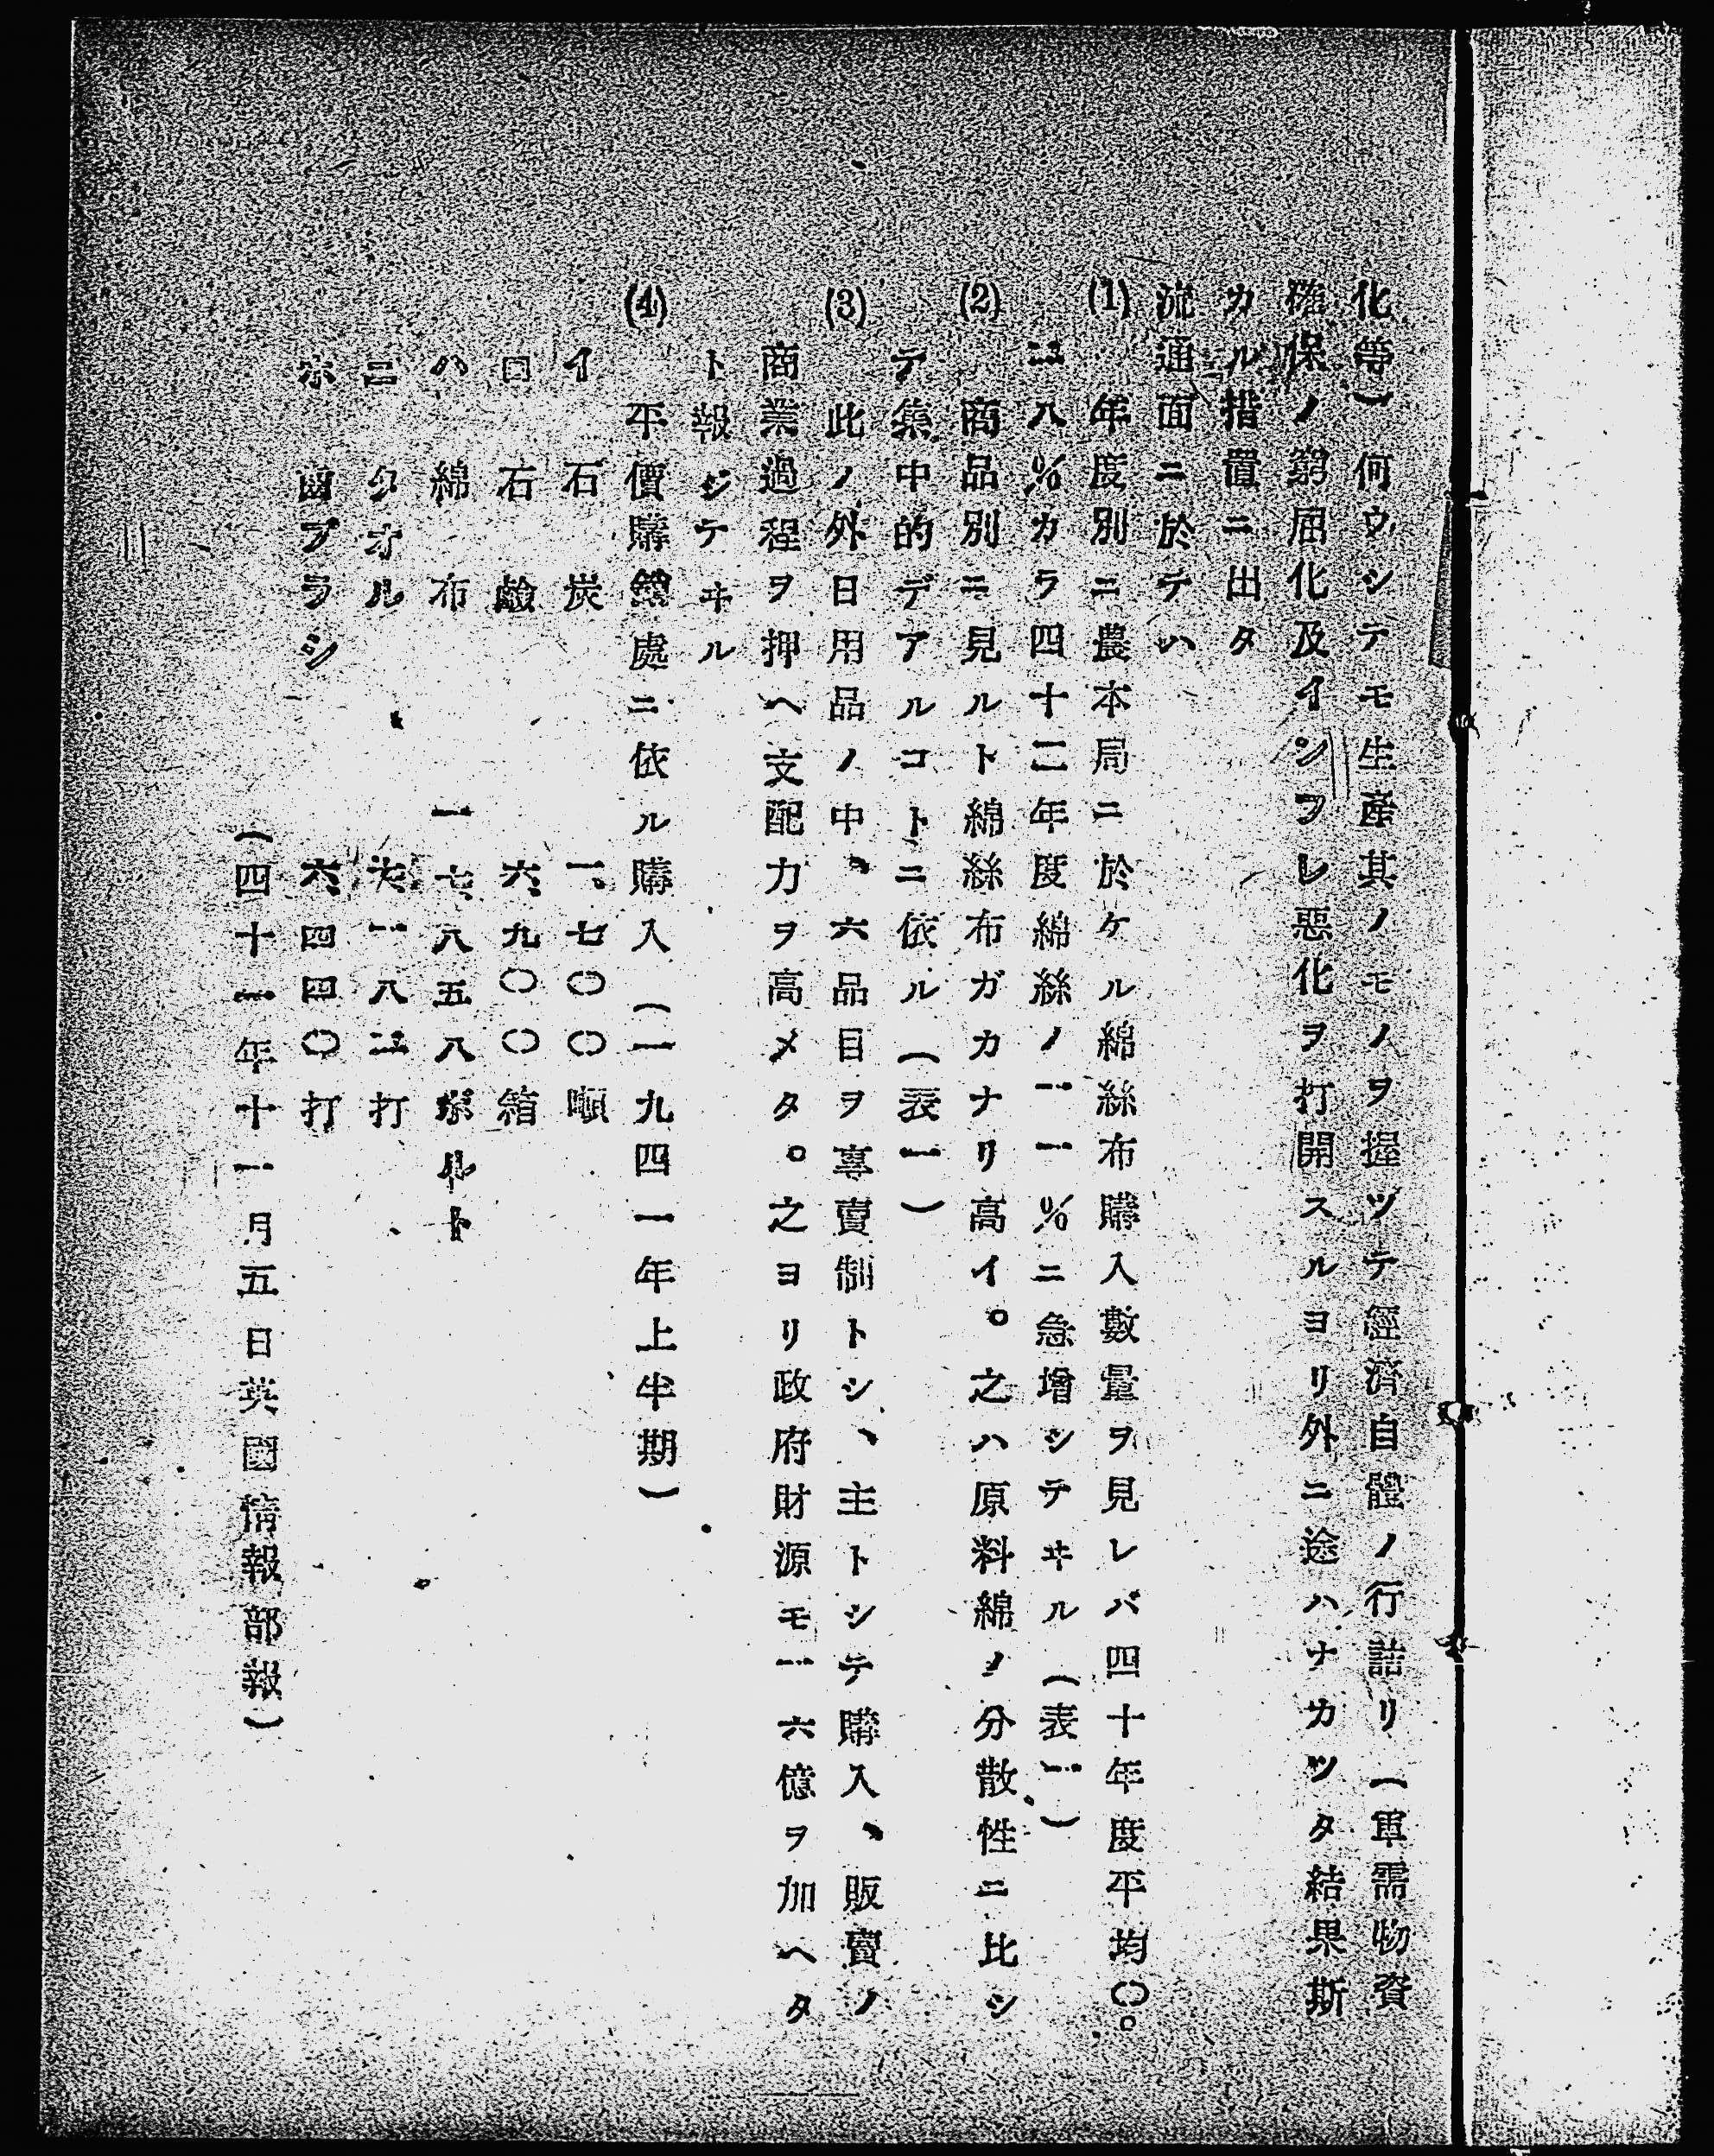 化等)何ウシテモ生産其ノモノヲ握ツテ經濟自體ノ行詰リ(軍需物資
確保ノ窮屈化及インフレ惡化ヲ打開スルヨリ外ニ途ハナカツタ結果斯
カル措置ニ出タ
流通面ニ於テハ
(1) 年度別ニ農本局ニ於ケル綿絲布購入數量ヲ見レバ四十年度平均〇。
二八%カラ四十二年度綿絲ノ一一%ニ急增シテヰル(表一)
(2) 商品別ニ見ルト綿絲布ガカナリ高イ。之ハ原料綿ノ分散性ニ比シ
テ集中的デアルコトニ依ル(表一)
(3) 此ノ外日用品ノ中、六品目ヲ專賣制トシ、主トシテ購入、販賣ノ
商業過程ヲ押ヘ支配力ヲ高メタ。之ヨリ政府財源モ一六億ヲ加ヘタ
ト報ジテヰル
(4) 平價購銷處ニ依ル購入(一九四一年上半期)
イ 石炭 一、七〇〇噸
ロ 石鹼 六、九〇〇箱
ハ 綿布 一七、八五八ボルト
ニ タオル 一八二打
ホ 齒ブラシ 六、四四〇打
(四十一年十一月五日英國情報部報)